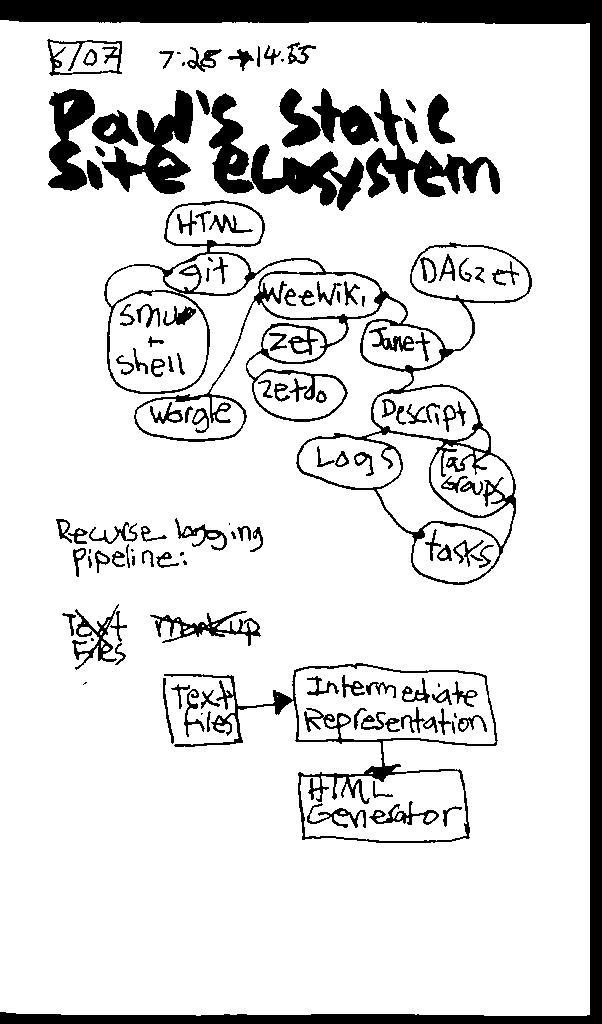 6/07 7:25 → 14:55
Paul's Static
Site ecosystem
HTML
git
DAGzet
WeeWiki
smu
+
shell
zet
Janet
zetdo
Worgle
Descript
Logs
Task
Groups
tasks
Recurse logging
pipeline:
Text
Files
markup
Text
files
Intermediate
Representation
HTML
Generator